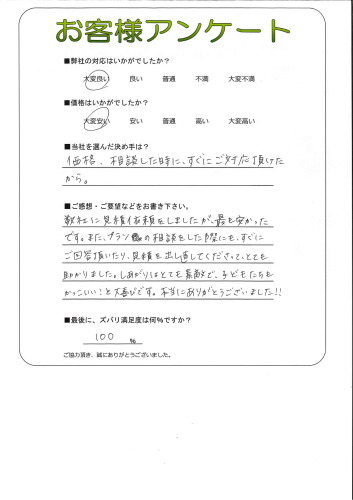 お客様アンケート
■弊社の対応はいかがでしたか？
大変良い 良い 普通 不満 大変不満
■価格はいかがでしたか？
大変安い 安い 普通 高い 大変高い
■当社を選んだ決め手は？
価格、相談した時に、すぐにご対応頂けた
から。
■ご感想・ご要望などをお書き下さい。
数社に見積依頼をしましたが、最も安かった
です。また、プランの相談をした際にも、すぐに
ご回答頂いたり、見積を出し直してくださって、とても
助かりました。しあがりはとても素敵で、子どもたちも
かっこいい！と大喜びです。本当にありがとうございました!!
■最後に、ズバリ満足度は何％ですか？
100 ％
ご協力頂き、誠にありがとうございました。